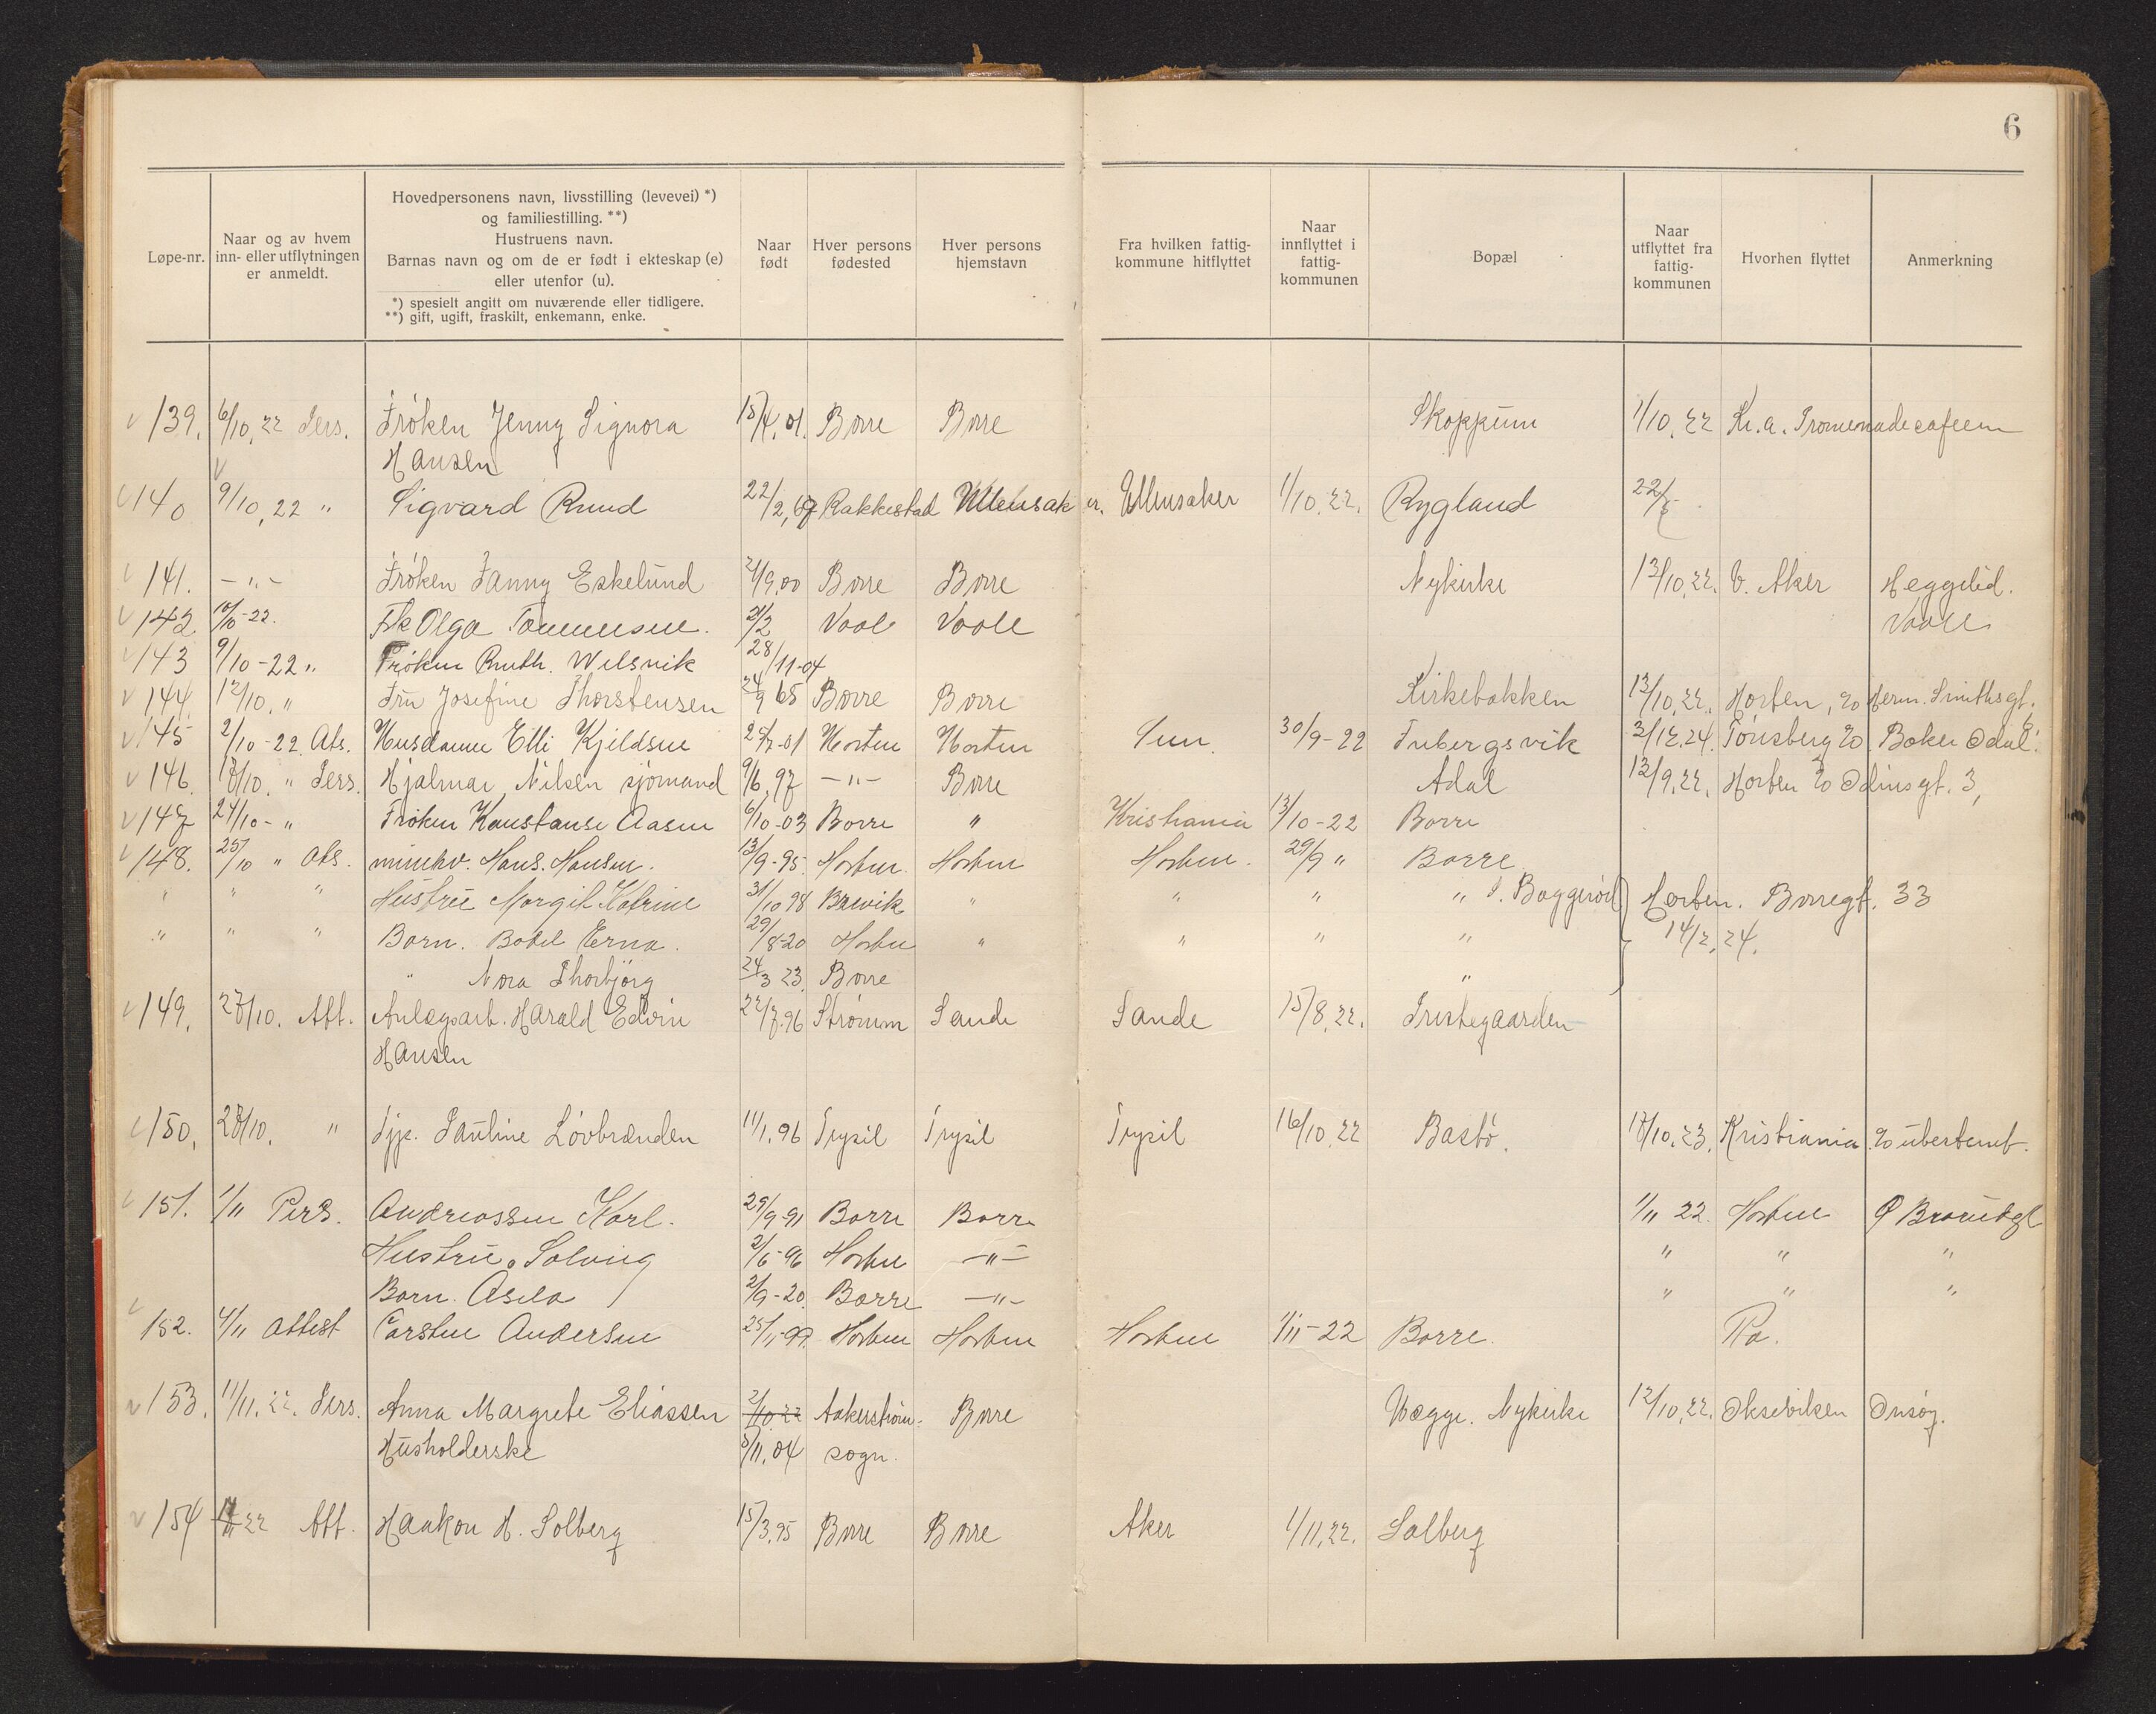 6
Løpe-nr.
Naar og av hvem
inn- eller utflytningen
er anmeldt.
Hovedpersonens navn, livsstilling (levevei) *)
og familiestilling. **)
Hustruens navn.
Barnas navn og om de er født i ekteskap (e)
eller utenfor (u).
*) spesielt angitt om nuværende eller tidligere.
**) gift, ugift, fraskilt, enkemann, enke.
Naar
født
Hver persons
fødested
Hver persons
hjemstavn
Fra hvilken fattig-
kommune hitflyttet
Naar
innflyttet i
fattig-
kommunen
Bopæl
Naar
utflyttet fra
fattig-
kommunen
Hvorhen flyttet
Anmerkning
139. 6/10,22 Pers. Frøken Jenny Signora 15/4,01. Borre Borre Skoppum 1/10,22 Kr.a. Promenadecafeen
Hansen
140 9/10,22 " Sigvard Ruud 22/2,67 Rakkestad Ullensaker. Ullensaker 1/10,22. Rygland 22/5
141. -"- Frøken Fanny Eskelund 2/9,00 Borre Borre Nykirke 13/10,22. V. Aker Heggelid.
142. 10/10-22. Frk Olga Tommesen. 2/2 Vaale Vaale Vaale
143 9/10-22 " Frøken Ruth. Wilsvik 28/11-04
144 12/10. " Fru Josefine Thorstensen 24/9 65 Borre Borre Kirkebakken 13/10,22. Horten, Herm. Smithsgt.
145 2/10-22. Ats. Husdame Elli Kjeldsen 25/7-01 Horten Horten Sem. 30/9-22 Fubergsvik 3/12,24. Tønsberg Baker Ødal. 6
146. 12/10. " Pers. Hjalmar Nilsen sjømand 9/6,97 -"- Borre Adal 12/9,22. Horten Odinsgt. 3,
147 24/10- " Frøken Konstanse Aasen 6/10-03 Borre " Kristiania 13/10-22 Borre
148. 25/10 " ats. minehv. Hans. Hansen. 13/9-95. Horten Horten Horten. 29/9 " Borre
" " " Hustru Margit Katrine 31/10 98 Brevik " " " " S. Baggerød Horten. Borregt. 33
" " " Barn. Bodil Erna. 29/8-20 Horten " " " " 14/2,24.
" Nora Thorbjørg 24/3 23. Borre "
149. 27/10. Att. Anlægsarb. Harald Edvin 22/7.96 Strømm Sande Sande 15/8,22. Prestegaarden
Hansen
150. 28/10. " Tjp. Pauline Løvbrænden 11/1,96 Trysil Trysil Trysil 16/10,22 Bastø. 17/10,23. Kristiania ubestemt.
151. 1/11 Pers. Andreassen Karl. 29/9-91 Borre Borre 1/11 22. Horten Ø Braarudgt
Hustru. Solveig 2/6-96 Horten -"- " " "
Barn. Asela 2/9-20. Borre -"- " " "
152. 4/11 attest Carsten Andersen 25/11-99. Horten Horten Horten 1/11-22 Borre. Ra.
153. 11/11.22. Pers. Anna Margrete Eliassen 2/10-22 Aakerstrøm- Borre Vægge. Nykirke 12/10,22. Oksebilsen Onsøy.
Husholderske 5/11,04 sogn.
154 22 Att. Haakon H. Solberg 15/3.95 Borre Borre Aker 1/11,22. Solberg